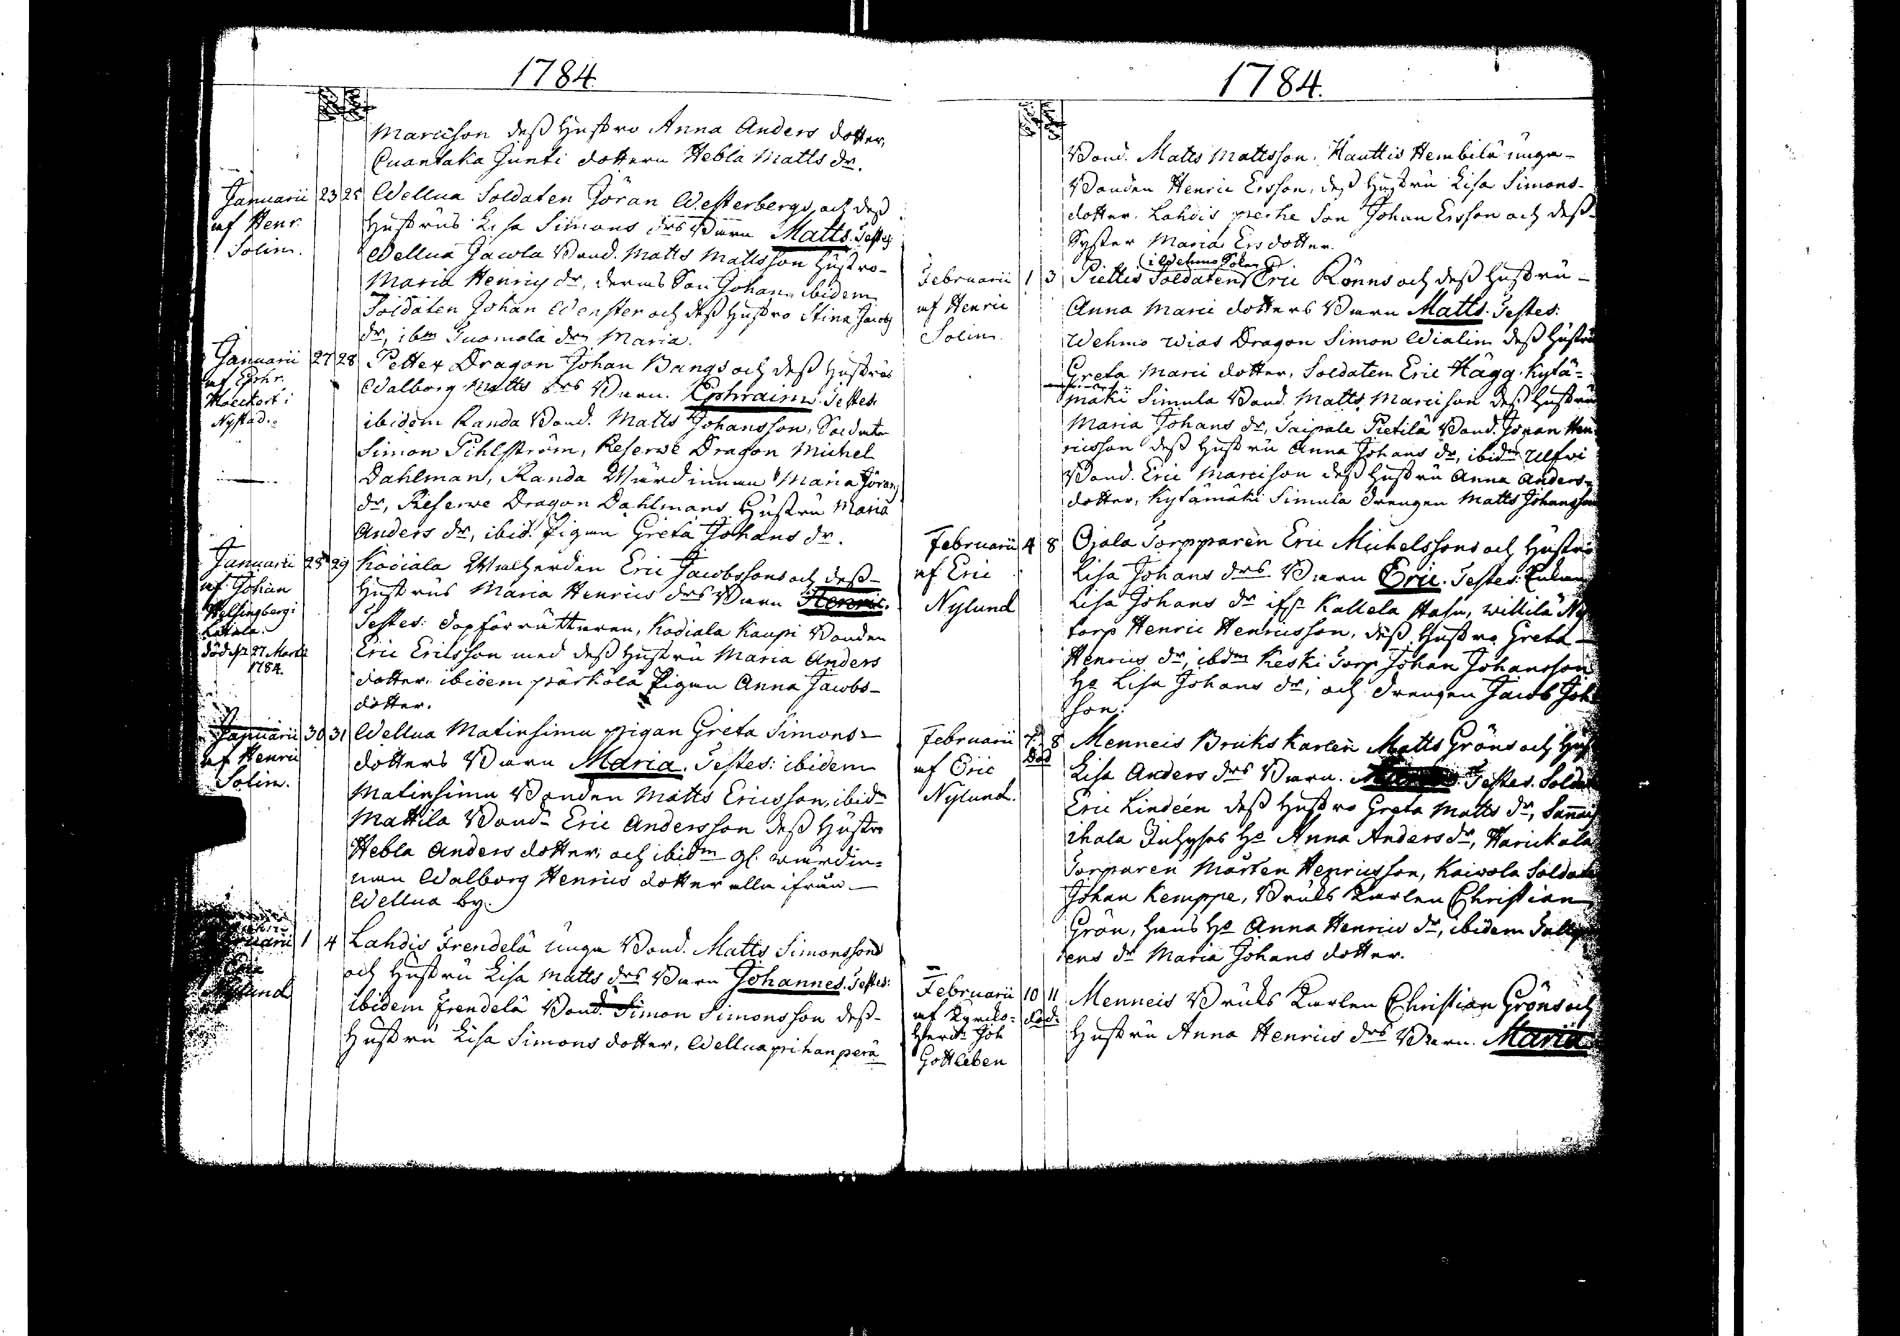 1784.
Marcisson deß Hustro Anna Anders dotter,
Cuantaka Junti dottern Hebla Matts dr.
Januarii 23 25 Wellua Soldaten Jöran Westerbergs och deß
af Henr. Hustrus Lisa Simons drs Barn Matts. Testes
Solin. Wellua Jacola Bond. Matts Mattsson Hustro
Maria Henrics dr, deras Son Johan, ibidem
Soldaten Johan Wenster och deß Hustro Stina Jacobs
dr, ibm Tuomola drn Maria.
Januarii 27 28 Petter Dragon Johan Bangs och deß Hustrus
af Ephr. Walborg Matts drs Barn. Ephraim. Testes:
Nystad. ibidem Randa Bond. Matts Johansson, Soldate
Simon Pihlström, Reserve Dragon Michel
Dahlman, Randa Wärdinnan Maria Jörans
dr, Reserve Dragon Dahlmans Hustru Maria
Anders dr, ibid. Pigan Greta Johans dr.
Januarii 28 29 Kodiala Eric Jacobssons och deß
af Johan Hustrus Maria Henrics drs Barn Henric.
Helsingberg i Testes: Kodiala Kaupi Bonden
död d. 27 Martii Eric Ericsson med deß Hustru Maria Anders
1784. dotter, ibidem pärkölä Pigan Anna Jacobs
dotter.
Januarii 30 31 Wellua Matinsimu pigan Greta Simons
af Henric dotters Barn Maria. Testes: ibidem
Solin. Matinsimu Bonden Matts Ericsson, ibidm
Mattila Bond. Eric Andersson deß Hustro
Hebla Anders dotter, och ibidm gl. wärdin-
nan Walborg Henrics dotter alla ifrån
Wellua by.
1 4 Lahdis Frendelä Unga Bond. Matts Simonssons
och Hustru Lisa Matts drs Barn Johannes. Testes:
Nylund ibidem Frendelä Bond. Simon Simonsson deß
Hustru Lisa Simons dotter, Wellua pihanperä
1784.
Bond. Matts Mattsson. Kauttis Hembilä unga
Bonden Henric Ersson, deß Hustru Lisa Simons-
dotter. Lahdis perhe Son Johan Ersson och deß
Syster Maria Ers dotter.
Februarii 1 3 Piettis Soldatens Eric Rönns och deß Hustru
af Henric Anna Marci dotters Barn Matts. Testes:
Solin. Wehmo Wias Dragon Simon Wialin deß Hustru
Greta Marci dotter, Soldaten Eric Hägg. Kylä-
mäki Simula Bond. Matts Marcisson deß Hustru
Maria Johans dr, Taipale Pietilä Bond. Johan Hen
ricsson deß Hustru Anna Johans dr, ibidm Ulfwi
Bond. Eric Marcisson deß Hustru Anna Anders-
dotter, Kylämäki Simula Drengen Matts Johansson
Februarii 4 8 Ojala Torpparen Eric Michelssons och Hustru
af Eric Lisa Johans drs Barn Eric. Testes:
Nylund Lisa Johans dr Kallela willilä
torp Henric Henricsson, deß Hustro Greta
Henrics dr, ibdm Keski Torp Johan Johansson
Ho Lisa Johans dr, och Drengen Jacob Joh
son.
Februarii 7 8 Menneis Bruks Karlen Matts Gröns och Hust
död
af Eric Lisa Anders drs Barn. Testes. Soldat
Nylund. Eric Lindéen deß Hustro Greta Matts dr,
Ho Anna Anders dr, Harickala
Torparen Mårten Henricsson, Kaiwola Soldate
Johan Kemppe, Bruks Karlen Christian
Grön, hans Ho Anna Henrics dr, ibidem
ens dr Maria Johans dotter.
Februarii 10 11 Menneis Bruks Karlen Christian Gröns och
död. Hustru Anna Henrics drs Barn. Maria
Joh
Gottleben